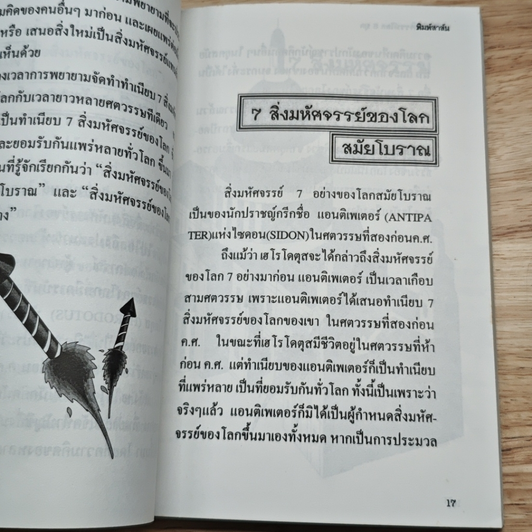 มคิดของคนอื่นๆ มาก่อน และเผยแพร่
หรือ เสนอสิ่งใหม่เป็นสิ่งมหัศจรรย์
เห็นด้วย
องเวลาการพยายามจัดทำทำเนียบ 7 สิ่ง
โลกกับเวลายาวหลายศตวรรษทีเดียว
เป็นทำเนียบ 7 สิ่งมหัศจรรย์ของโลก
และยอมรับกันแพร่หลายทั่วโลก ขึ้น
นที่รู้จักเรียกกันว่า “สิ่งมหัศจรรย์
โบราณ” และ “สิ่งมหัศจรรย์ของโลก
าง”
พิมพ์สาส์น
7 สิ่งมหัศจรรย์ของโลก
สมัยโบราณ
สิ่งมหัศจรรย์ 7 อย่างของโลกสมัยโบราณ
เป็นของนักปราชญ์กรีกชื่อ แอนติเพเตอร์ (ANTIPA
TER)แห่งไซดอน(SIDON)ในศตวรรษที่สองก่อนค.ศ.
ถึงแม้ว่า เฮโรโดตุสจะได้กล่าวถึงสิ่งมหัศจรรย์
ของโลก 7 อย่างมาก่อน แอนติเพเตอร์ เป็นเวลาเกือบ
สามศตวรรษ เพราะแอนติเพเตอร์ได้เสนอทำเนียบ 7
สิ่งมหัศจรรย์ของโลกของเขา ในศตวรรษที่สองก่อน
ค.ศ. ในขณะที่เฮโรโดตุสมีชีวิตอยู่ในศตวรรษที่ห้า
ก่อน ค.ศ. แต่ทำเนียบของแอนติเพเตอร์ก็เป็นทำเนียบ
ที่แพร่หลาย เป็นที่ยอมรับกันทั่วโลก ทั้งนี้เป็นเพราะว่า
จริงๆแล้ว แอนติเพเตอร์ก็มิได้เป็นผู้กำหนดสิ่งมหัศ-
จรรย์ของโลกขึ้นมาเองทั้งหมด หากเป็นการประมวล
17